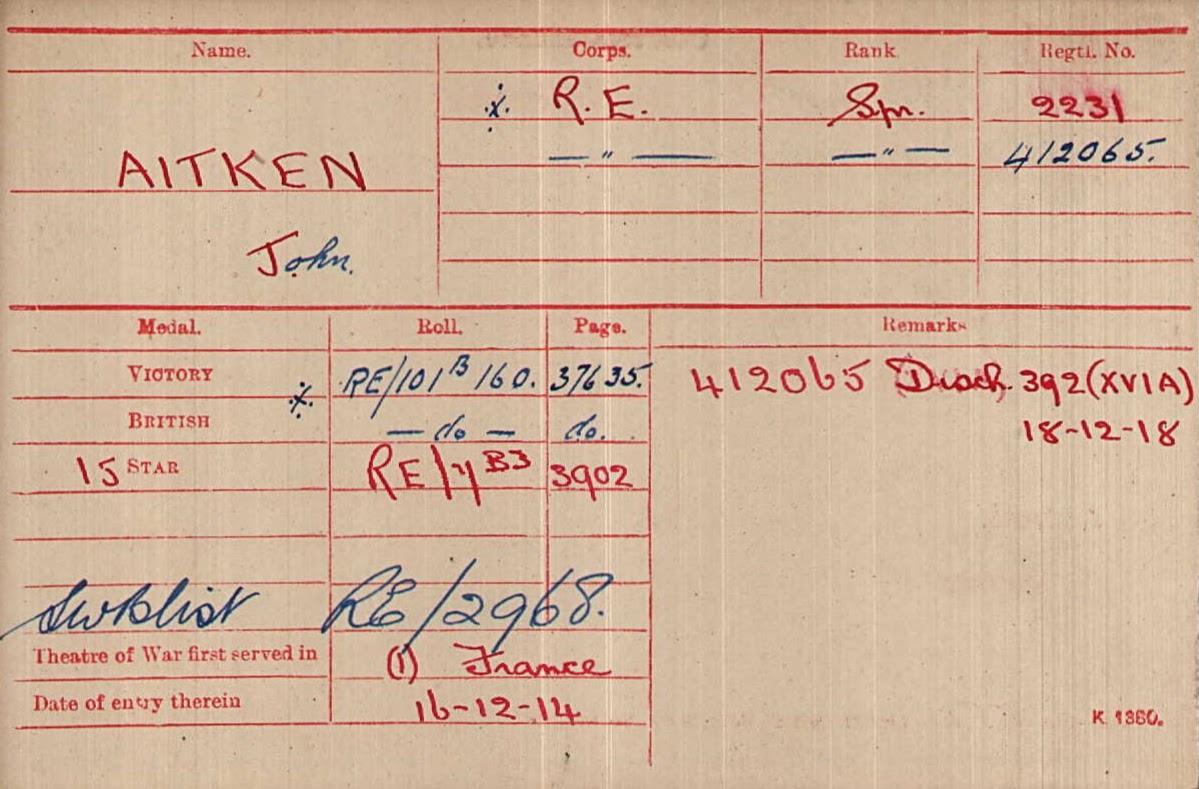 Name. Corps. Rank Regtl. No.
R. E. Spr. 2231
— " — — " — 412065.
AITKEN
John.
Medal. Roll. Page. Remarks
VICTORY RE/101 B 160. 37635. 412065 Disch. 392 (XVI A)
BRITISH — do — do. 18-12-18
15 STAR RE/ B3 3902
SWB list RE/2968.
Theatre of War first served in (1) France
Date of entry therein 16-12-14
K 1380.